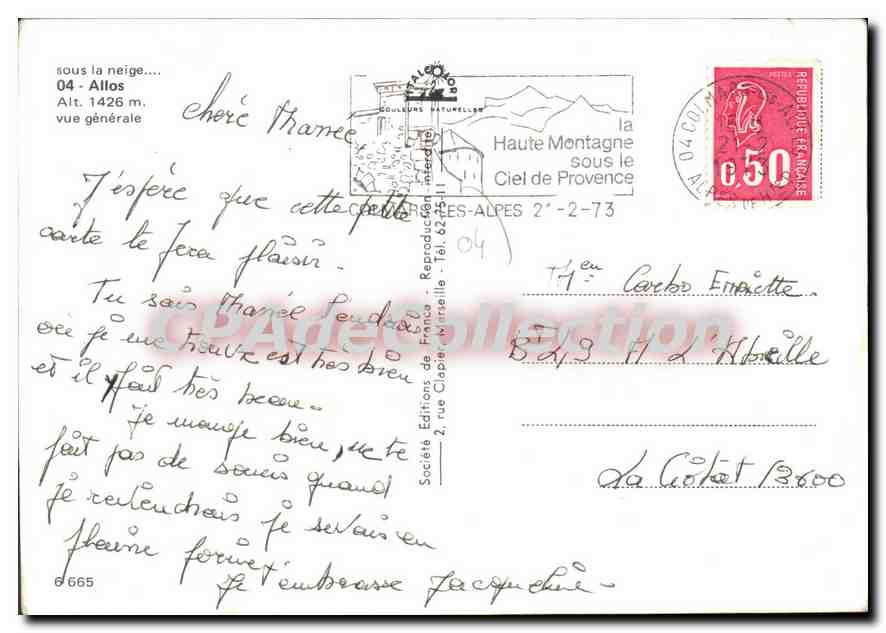 sous la neige....
04 - Allos
Alt. 1426 m.
vue générale
ITALCOLOR
COULEURS NATURELLES
la
Haute Montagne
sous le
Ciel de Provence
COLMARS-LES-ALPES 2 -2-73
04 COLMARS
ALPES DE HTE
POSTES
REPUBLIQUE FRANÇAISE
0,50
04
chère Mamée
J'espère que cette petite
carte te fera plaisir.
Tu sais Mamée l'endroit
où je me trouve est très bien
et il fait très beau.
Je mange bien, ne te
fait pas de soucis quand
je reviendrais je serais en
pleine forme
Je t'embrasse Jacqueline
Société Editions de France - Reproduction interdite
2, rue Clapier, Marseille - Tél. 62-75-11
CPAdeCollection
Carbo Emilette
Bt 43 A L'Abeille
La Ciotat 13600
6 665